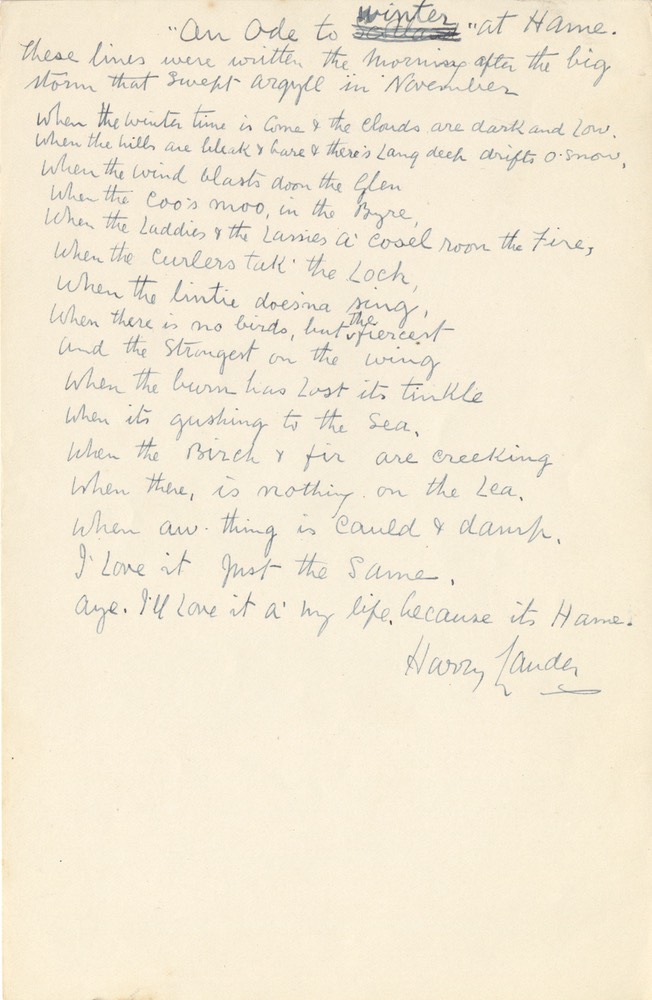 "An Ode to winter" at Hame.
These lines were written the Morning after the big
storm that Swept Argyll in November
When the winter time is Come & the Clouds are dark and Low.
When the hills are bleak & bare & there's Lang deep drifts o' snow,
When the wind blasts doon the Glen
When the Coo's moo, in the Byre,
When the Laddies & the Lassies a' cosel roon the Fire,
When the Curlers tak' the Loch,
When the lintie doesna sing,
When there is no birds, but the fiercest
and the Strongest on the wing
When the burn has Lost its tinkle
When its gushing to the Sea.
When the Birch & fir are creeking
When there, is nothing on the Lea.
When aw. thing is Cauld & damp.
I Love it Just the Same.
Aye. I'll Love it a' my life. because its Hame.
Harry Lauder